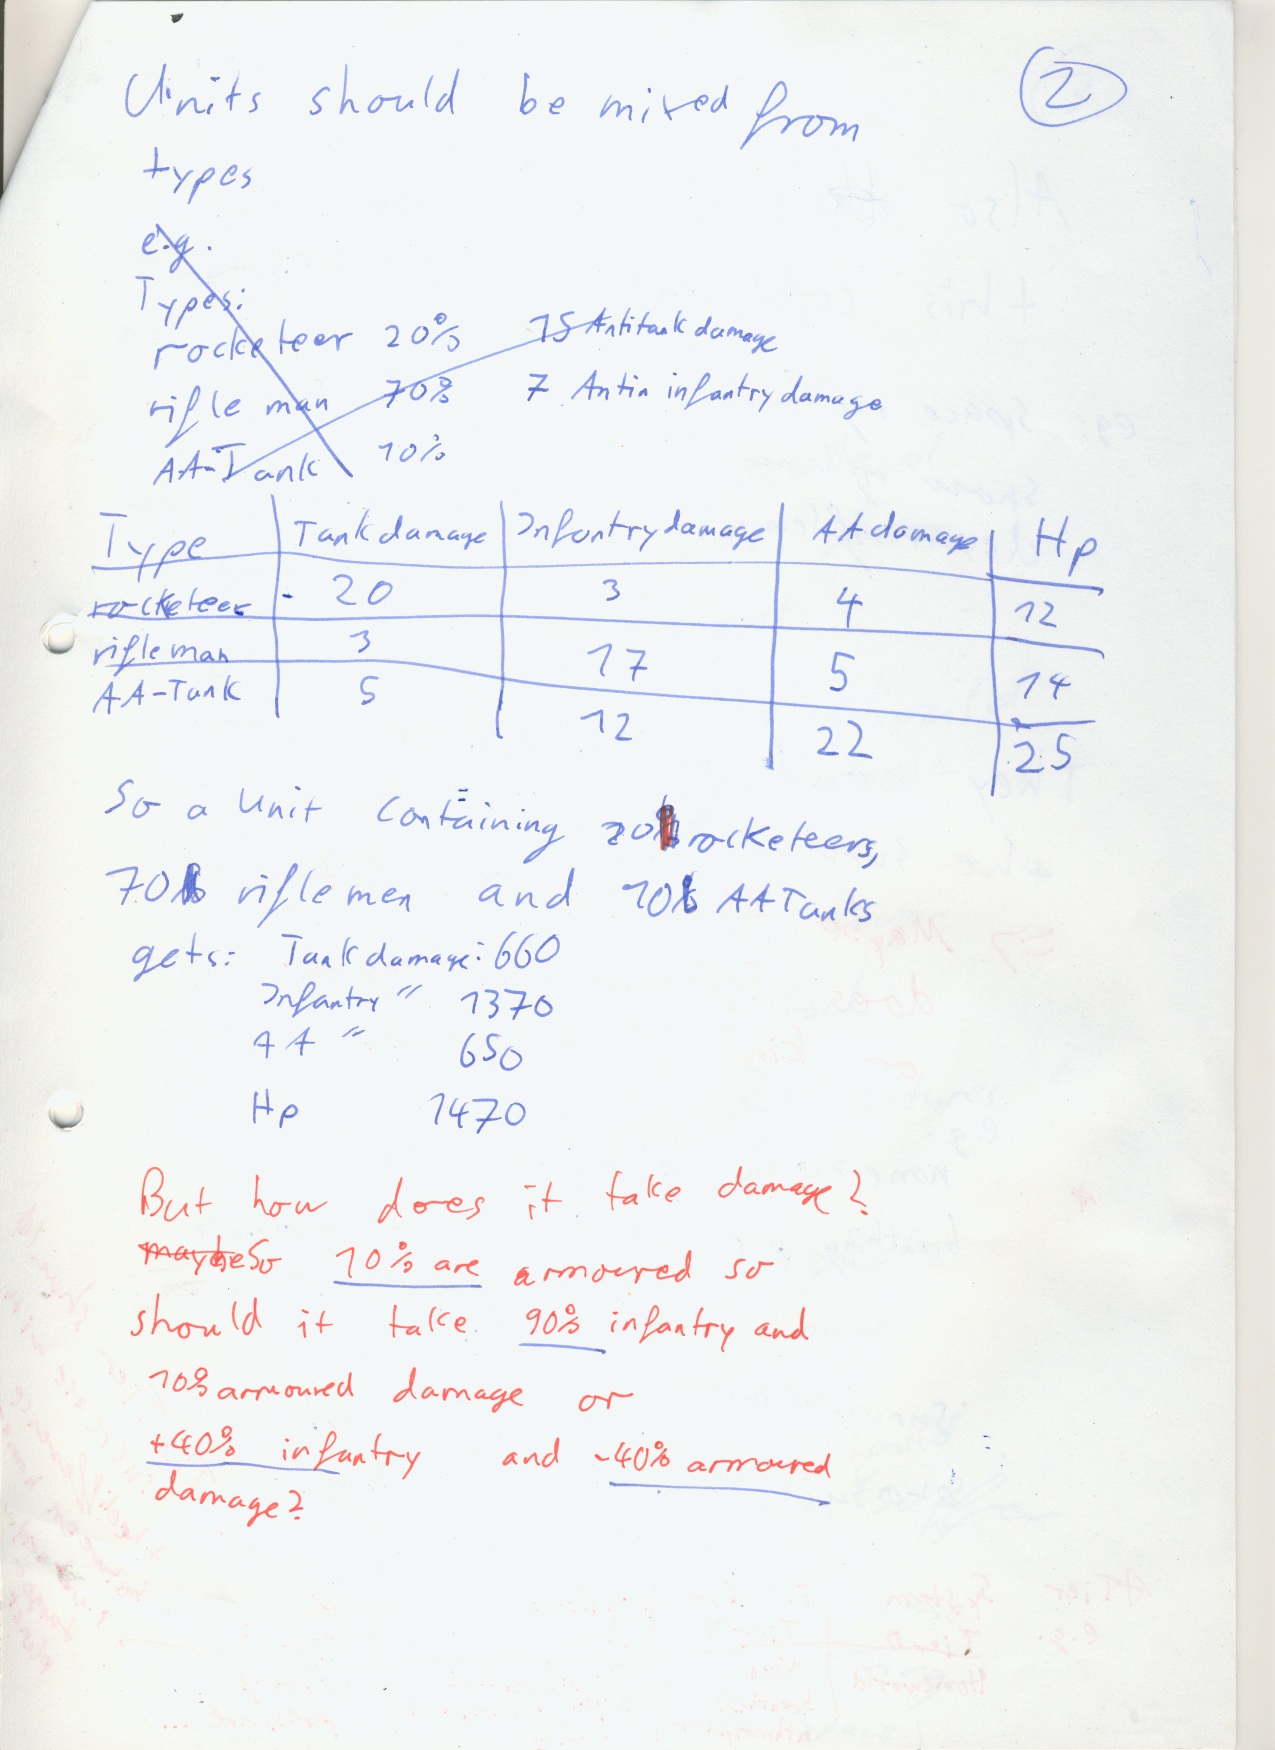 2
Units should be mixed from
types
e.g.
Types:
rocketeer 20% 15 Antitank damage
rifle man 70% 7 Antin infantry damage
AA-Tank 10%
Type Tank damage Infantry damage AA damage Hp
rocketeer 20 3 4 12
rifleman 3 17 5 14
AA-Tank 5 12 22 25
So a Unit containing 20 rocketeers,
70 riflemen and 10 AA Tanks
gets: Tank damage: 660
Infantry " 1370
AA " 650
Hp 1470
But how does it take damage?
maybe So 10% are armoured so
should it take 90% infantry and
10% armoured damage or
+40% infantry and -40% armoured
damage?